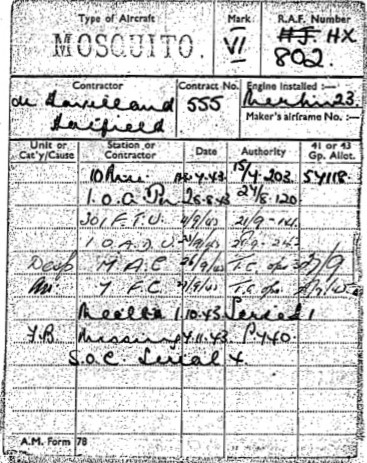 Type of Aircraft Mark R.A.F. Number
MOSQUITO. VI HJ HX
802.
Contractor Contract No. Engine installed :—
de Havilland 555 Merlin 23.
Hatfield Maker's airframe No. :—
Unit or Cat'y/Cause Station or Contractor Date Authority 41 or 43 Gp. Allot.
10 4.43 15/4 203. 54118.
1.O.A. 26.8.43 24/8.120
301 F.T.U. /9/43 21/9
1 O.A.D.U. /9/43
Desp M.A.C 26/9/43 T.C. 27/9
Arr. /9/43 T.C.
Malta 1.10.43 Serial 1
F.B. Missing 4.11.43 P.440
S.O.C Serial 4.
A.M. Form 78